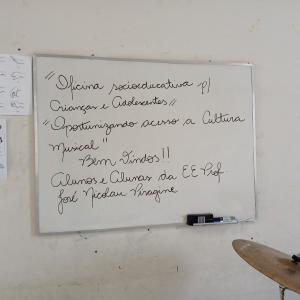 "Oficina socioeducativa p/
Crianças e Adolescentes"
"Oportunizando acesso a Cultura
Musical"
Bem Vindos!!
Alunos e Alunas da EE Prof.
José Nicolau Piragine